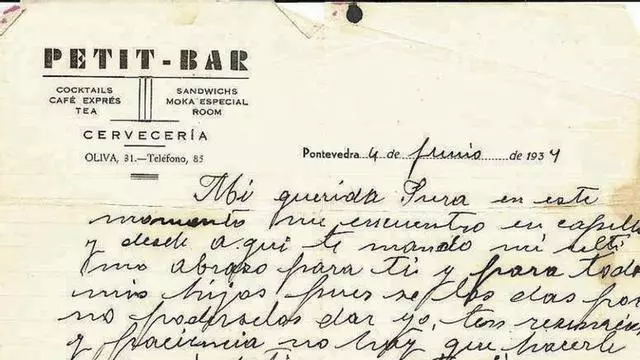 PETIT-BAR
COCKTAILS
CAFÉ EXPRÉS
TEA
SANDWICHS
MOKA ESPECIAL
ROOM
CERVECERÍA
OLIVA, 31.—Teléfono, 85
Pontevedra 4 de Junio de 1937
Mi querida Pura en este
momento me encuentro en capilla
y desde aqui te mando mi ulti
mo abrazo para ti y para todo
mis hijos pues se los das por
no poderselos dar yo, ten resinacio
y paciencia no hay que hacerle